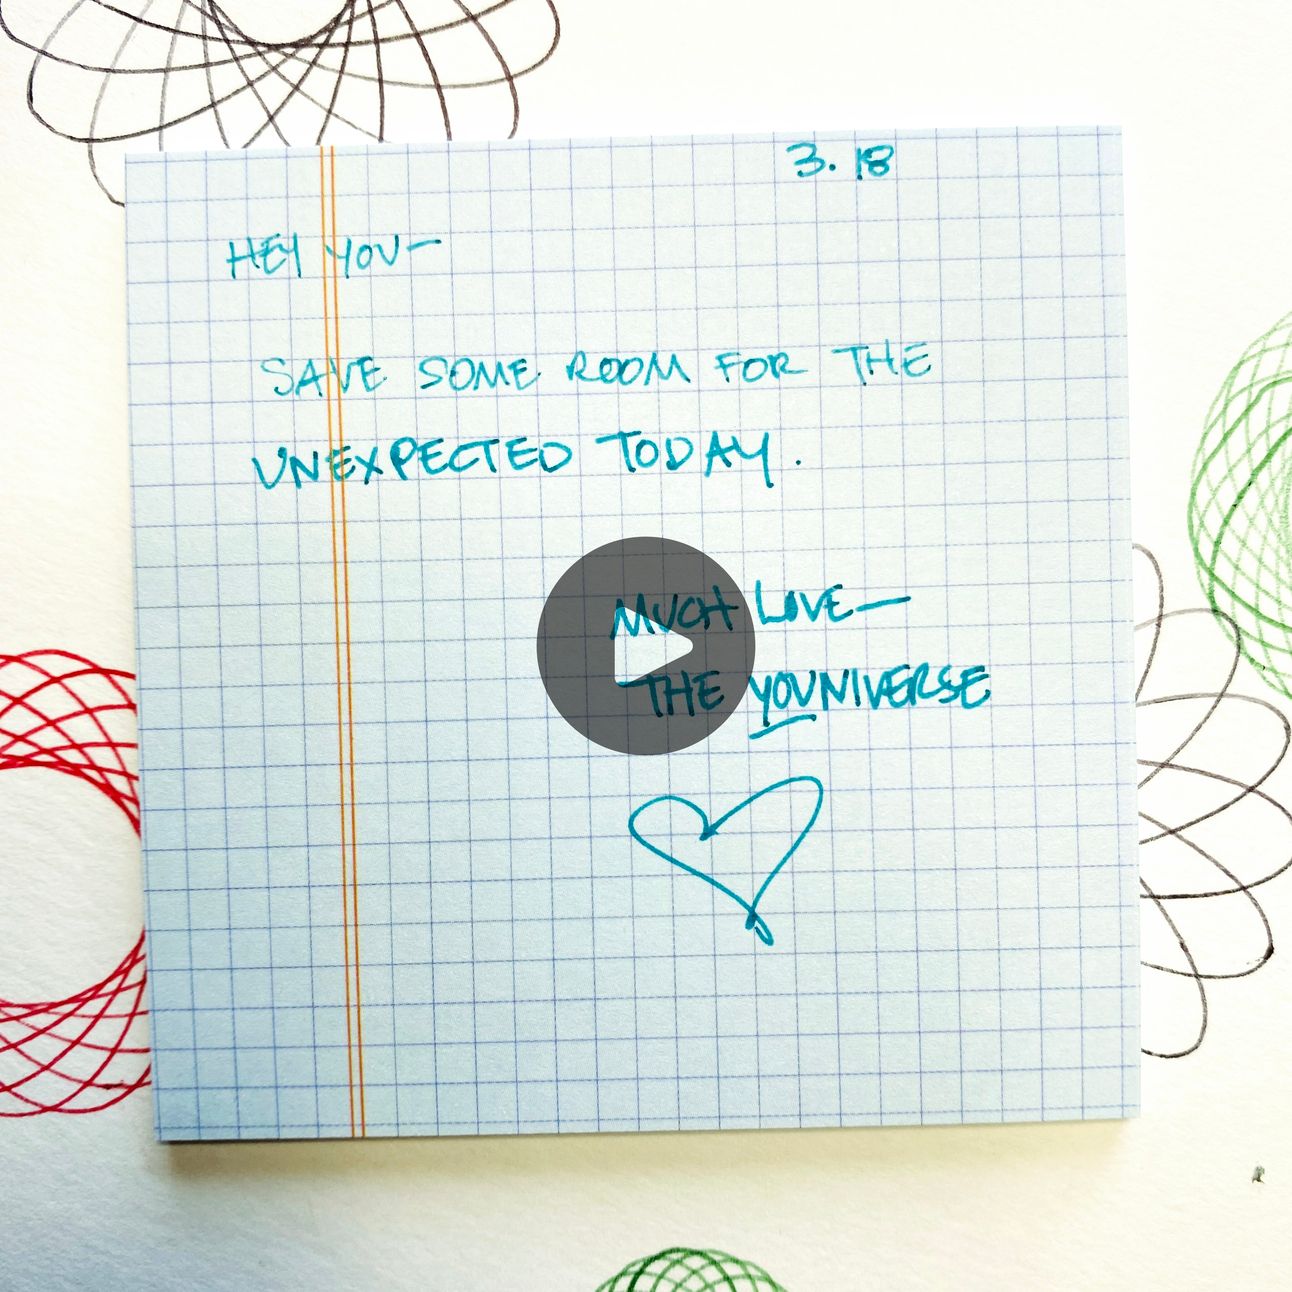 3. 18
HEY YOU—
SAVE SOME ROOM FOR THE
UNEXPECTED TODAY.
MUCH LOVE—
THE YOUNIVERSE